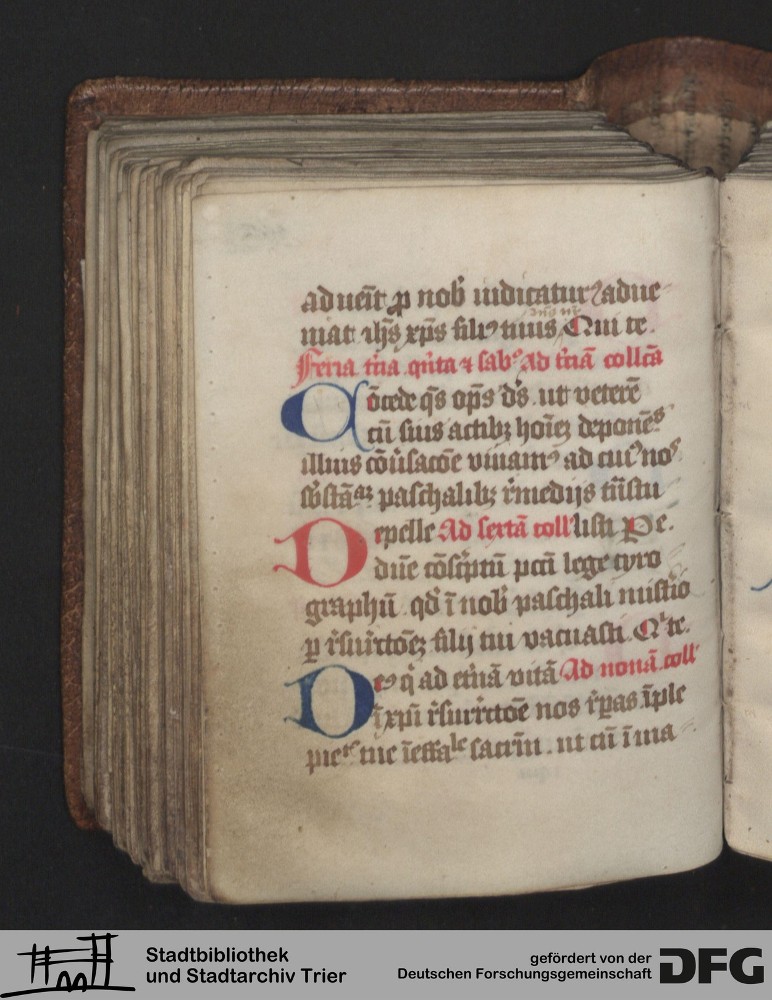 aduen̄t ꝓ nob̄ iudicatur⁊ adue
niat ih̄s xp̄s filiꝰ tuus Qui te.
Feria t̄cia qn̄ta ⁊ sabb̄o Ad t̄ciā collc̄a
Cōcede q̄s op̄s ds̄. ut veterē
cū suis actibꝫ hoīeꝫ deponētes
illius cōūsacōe viuamꝰ ad cuiꝰ nos
sb̄stā paschalibꝫ r̄medijs tn̄stu
Depelle Ad sextā coll listi Pe.
dn̄e cōsc̄ptū pcc̄i lege cyro
graphū. qd̄ ī nob̄ paschali misτ̄io
ꝑ r̄surr̄ctōeꝫ filij tui vacuasti. Q te.
Deꝰ q̄ ad et̄nā vitā Ad nonā coll
ī xp̄i r̄surr̄ctōe nos r̄paras īple
pie tue īeffale sacrm̄. ut cū ī ma
Stadtbibliothek
und Stadtarchiv Trier
gefördert von der
Deutschen Forschungsgemeinschaft
DFG